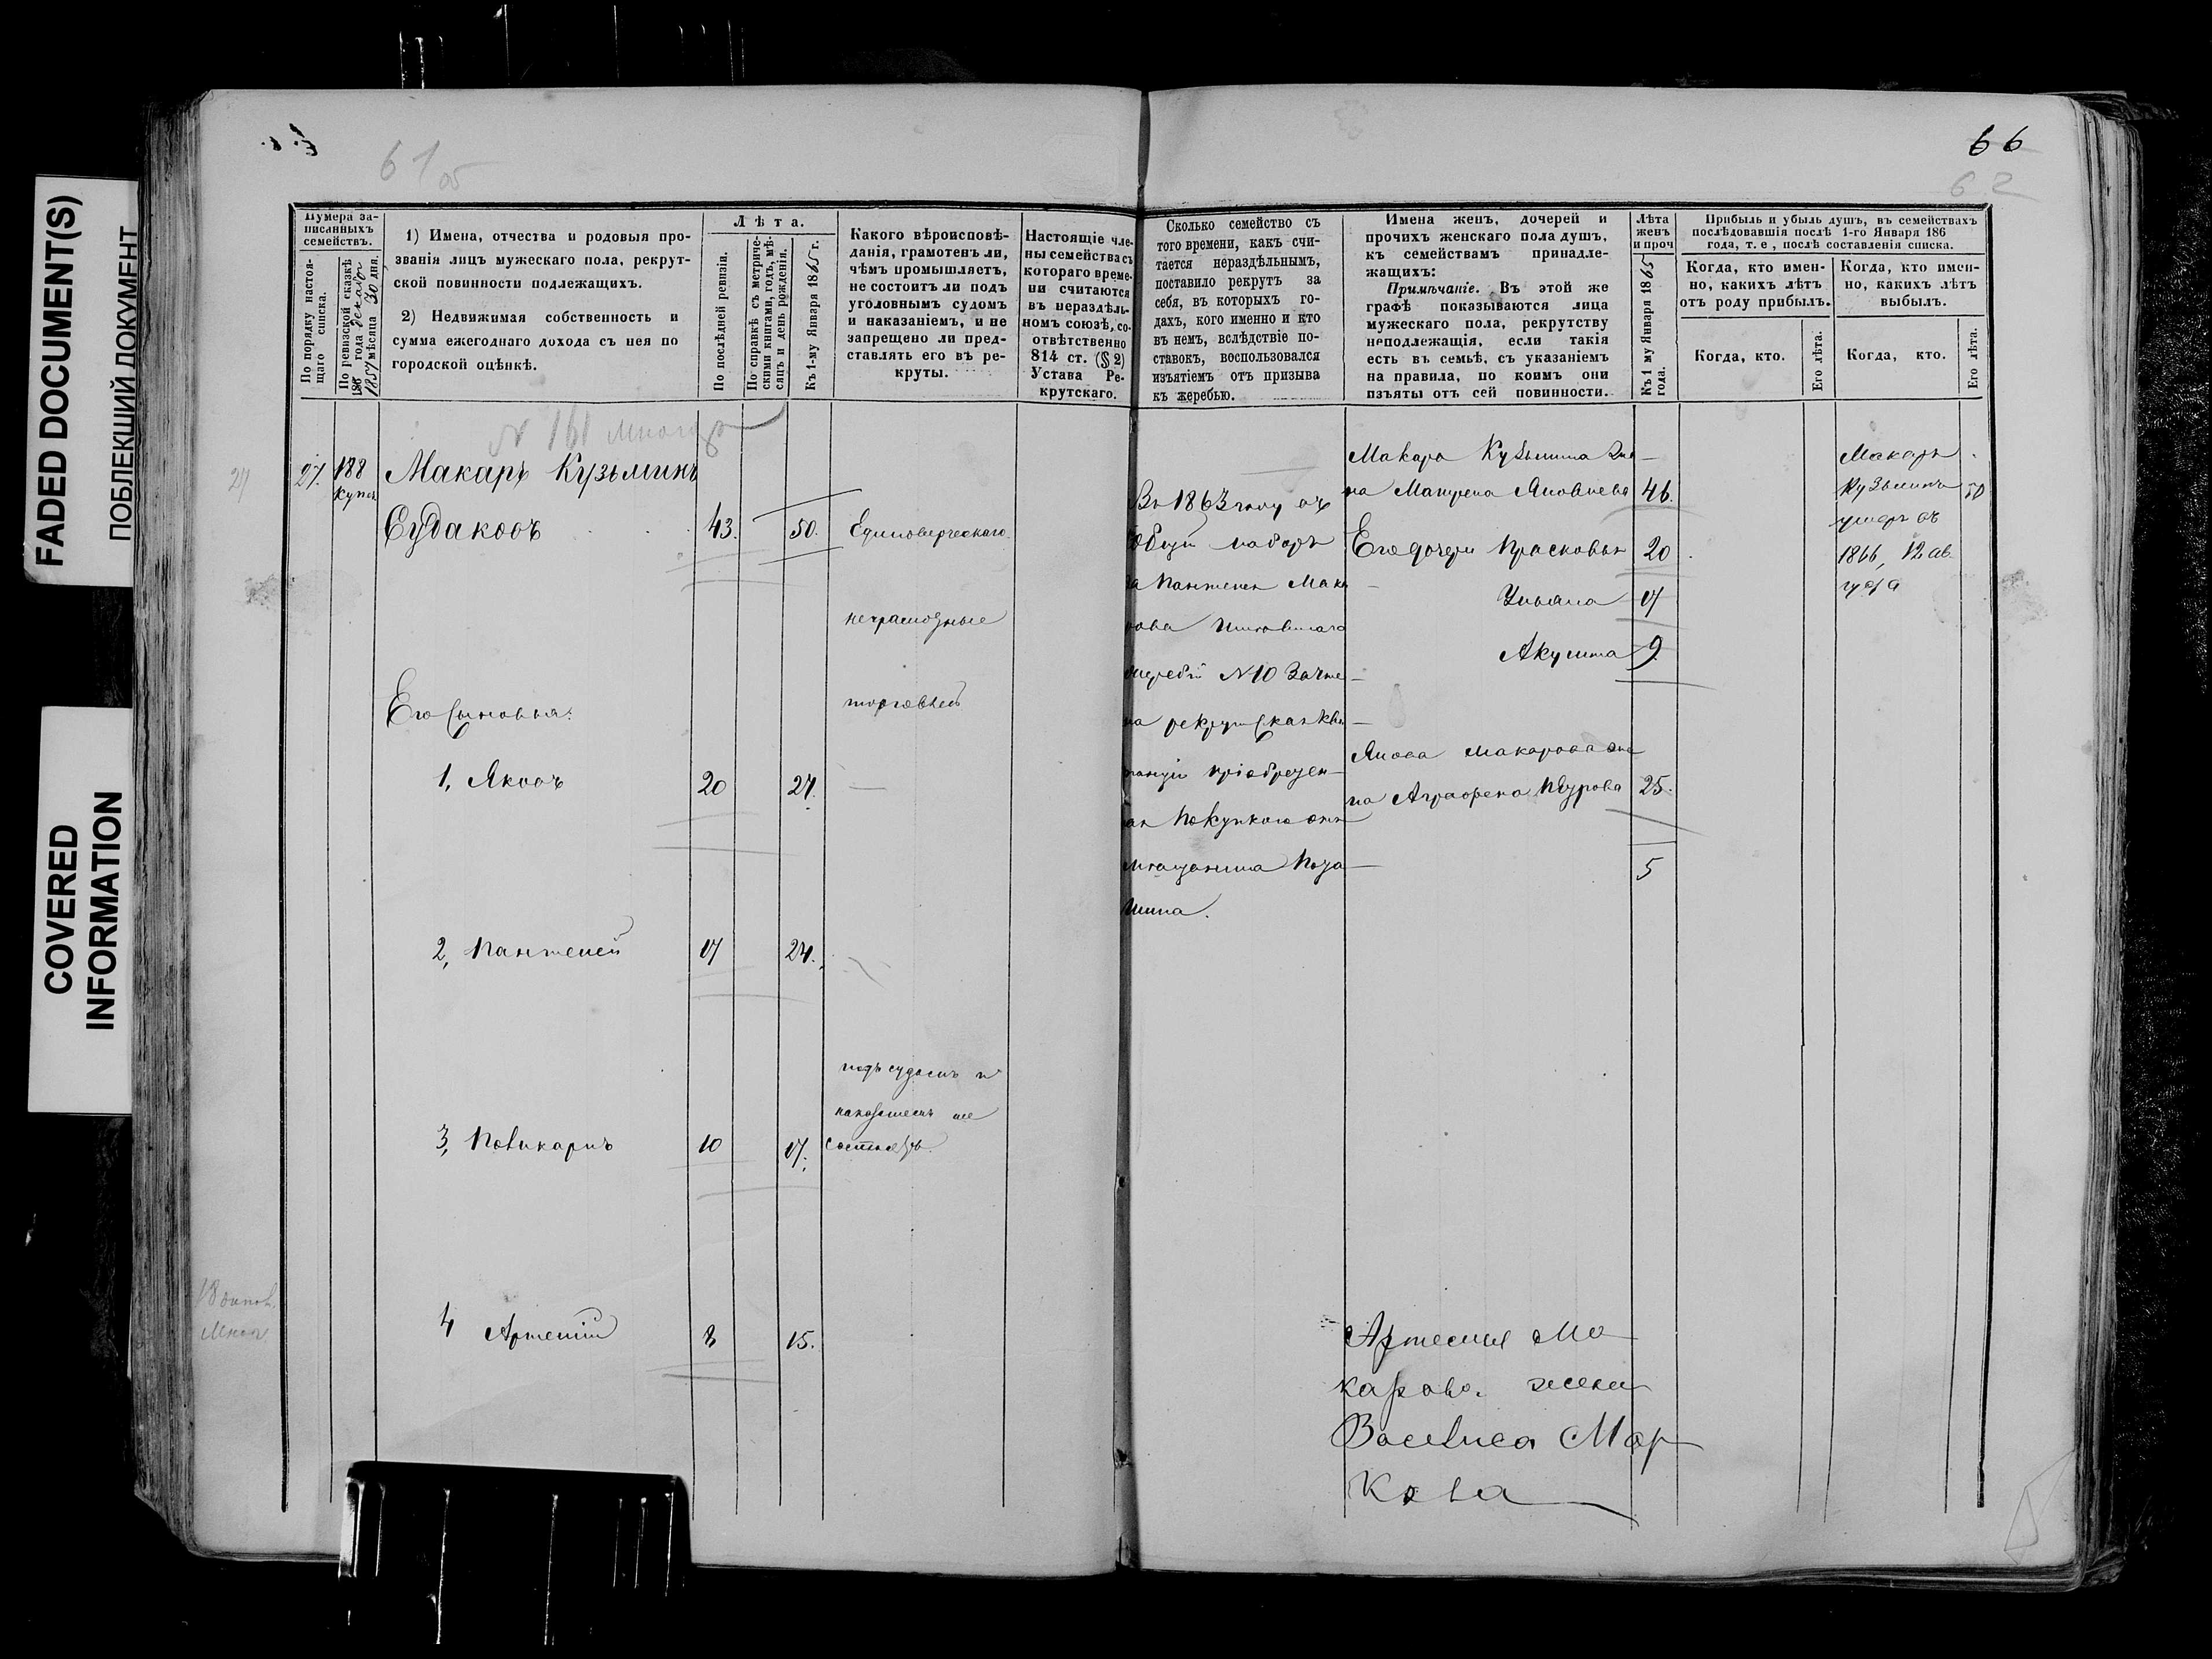 FADED DOCUMENT(S)
ПОБЛЕКШИЙ ДОКУМЕНТ
COVERED
INFORMATION
61 об
66
62
Нумера записанныхъ семействъ.
По порядку настоящаго списка.
По ревизской сказкѣ 1857 года декабря мѣсяца 30 дня.
1) Имена, отчества и родовыя прозванія лицъ мужескаго пола, рекрутской повинности подлежащихъ.
2) Недвижимая собственность и сумма ежегоднаго дохода съ нея по городской оцѣнкѣ.
Лѣта.
По послѣдней ревизіи.
По справкѣ съ метрическими книгами, годъ, мѣсяцъ и день рожденія.
Къ 1-му Января 1865 г.
Какого вѣроисповѣданія, грамотенъ ли, чѣмъ промышляетъ, не состоитъ ли подъ уголовнымъ судомъ и наказаніемъ, и не запрещено ли представлять его въ рекруты.
Настоящіе члены семейства съ котораго времени считаются въ нераздѣльномъ союзѣ, соотвѣтственно 814 ст. (§ 2) Устава Рекрутскаго.
Сколько семейство съ того времени, какъ считается нераздѣльнымъ, поставило рекрутъ за себя, въ которыхъ годахъ, кого именно и кто въ немъ, вслѣдствіе поставокъ, воспользовался изъятіемъ отъ призыва къ жеребью.
Имена женъ, дочерей и прочихъ женскаго пола душъ, къ семействамъ принадлежащихъ:
Примѣчаніе. Въ этой же графѣ показываются лица мужескаго пола, рекрутству неподлежащія, если такія есть въ семьѣ, съ указаніемъ на правила, по коимъ они изъяты отъ сей повинности.
Лѣта женъ и проч
Къ 1 му Января 1865 года.
Прибыль и убыль душъ, въ семействахъ послѣдовавшія послѣ 1-го Января 186 года, т. е, послѣ составленія списка.
Когда, кто именно, какихъ лѣтъ отъ роду прибылъ.
Когда, кто именно, какихъ лѣтъ выбылъ.
Когда, кто.
Его лѣта.
Когда, кто.
Его лѣта.
N 161
27
27. 188 Макаръ Кузьминъ
Судаковъ 43. 50. Единоверческаго
неграмотные
Его Сыновья: торговлей
1, Яковъ 20 27.
2, Пантелей 17 24.
подъ судомъ и
не
3, Поликарпъ 10 17. состоятъ.
4 Артемій 8 15.
Въ 1863 году въ
общій наборъ
за Пантелея Мака
рова имевшаго
жеребій N 10 Зачте
на рекрутская кви
танція пріобретен
ая покупкою отъ
мещанина
Макара Кузьмина же
на Матрена Яковлева 46.
Его дочери Прасковья 20
Ульяна 17
Акулина 9.
Якова Макарова же
на Аграфена 25.
5
Артемия Ма
карова жена
Василиса Мар
кова
Макаръ
Кузьминъ 50
умеръ въ
1866, 12 ав
густа